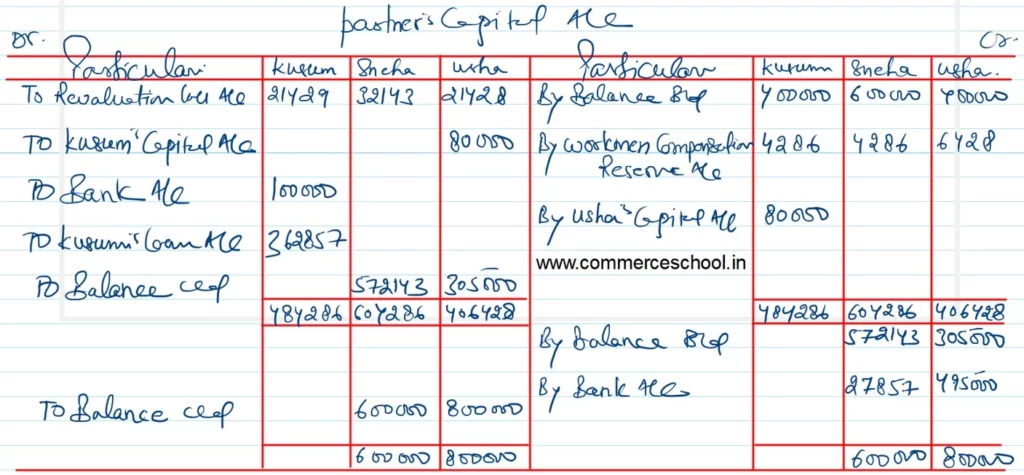 partner's Capital A/c
Dr. Cr.
Particulars Kusum Sneha Usha Particulars Kusum Sneha Usha.
To Revaluation loss A/c 21429 32143 21428 By Balance B/d 400000 600000 400000
To Kusum's Capital A/c 80000 By Workmen Compensation 4286 4286 6428
Reserve A/c
To Bank A/c 100000
By Usha's Capital A/c 80000
To Kusum's Loan A/c 362857
www.commerceschool.in
To Balance c/d 572143 305000
484286 604286 406428 484286 604286 406428
By Balance B/d 572143 305000
By Bank A/c 27857 495000
To Balance c/d 600000 800000
600000 800000 600000 800000